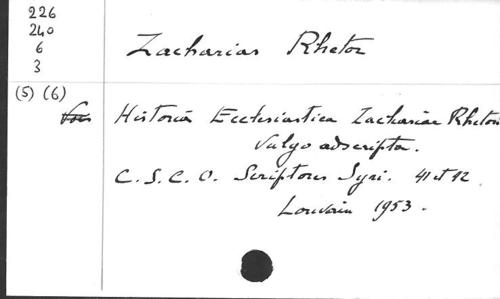 226
240
6
3
Zacharias Rhetor
(5) (6)
Historia Ecclesiastica Zachariae Rhetori
Vulgo adscripta.
C.S.C.O. Scriptores Syri. 41 et 42
Louvain 1953.